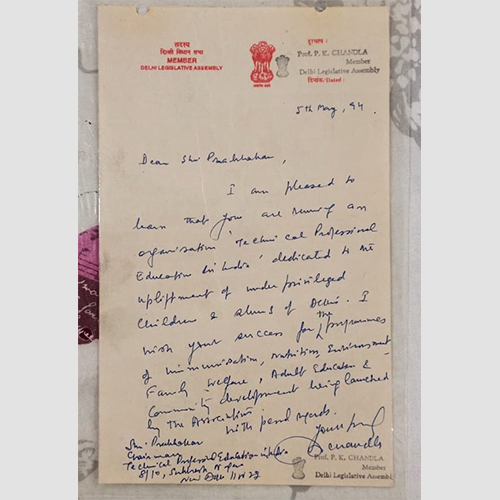 सदस्य
दिल्ली विधान सभा
MEMBER
DELHI LEGISLATIVE ASSEMBLY
दूरभाष :
Prof. P. K. CHANDLA
Member
Delhi Legislative Assembly
दिनांक/Dated :
5th May, 94
Dear Shri Prabhakar,
I am pleased to
learn that you are running an
organisation 'Technical Professional
Education in India' dedicated to the
upliftment of under privileged
Children & slums of Delhi. I
wish your success for the programmes
of immunisation, Nutrition, Environment
Family Welfare, Adult Education &
Community development being launched
by the Association.
with regards.
Chandla
Shri Prabhakar
Chairman
Technical Professional Education in India
8/10, Nagar
New Delhi
Prof. P. K. CHANDLA
Member
Delhi Legislative Assembly